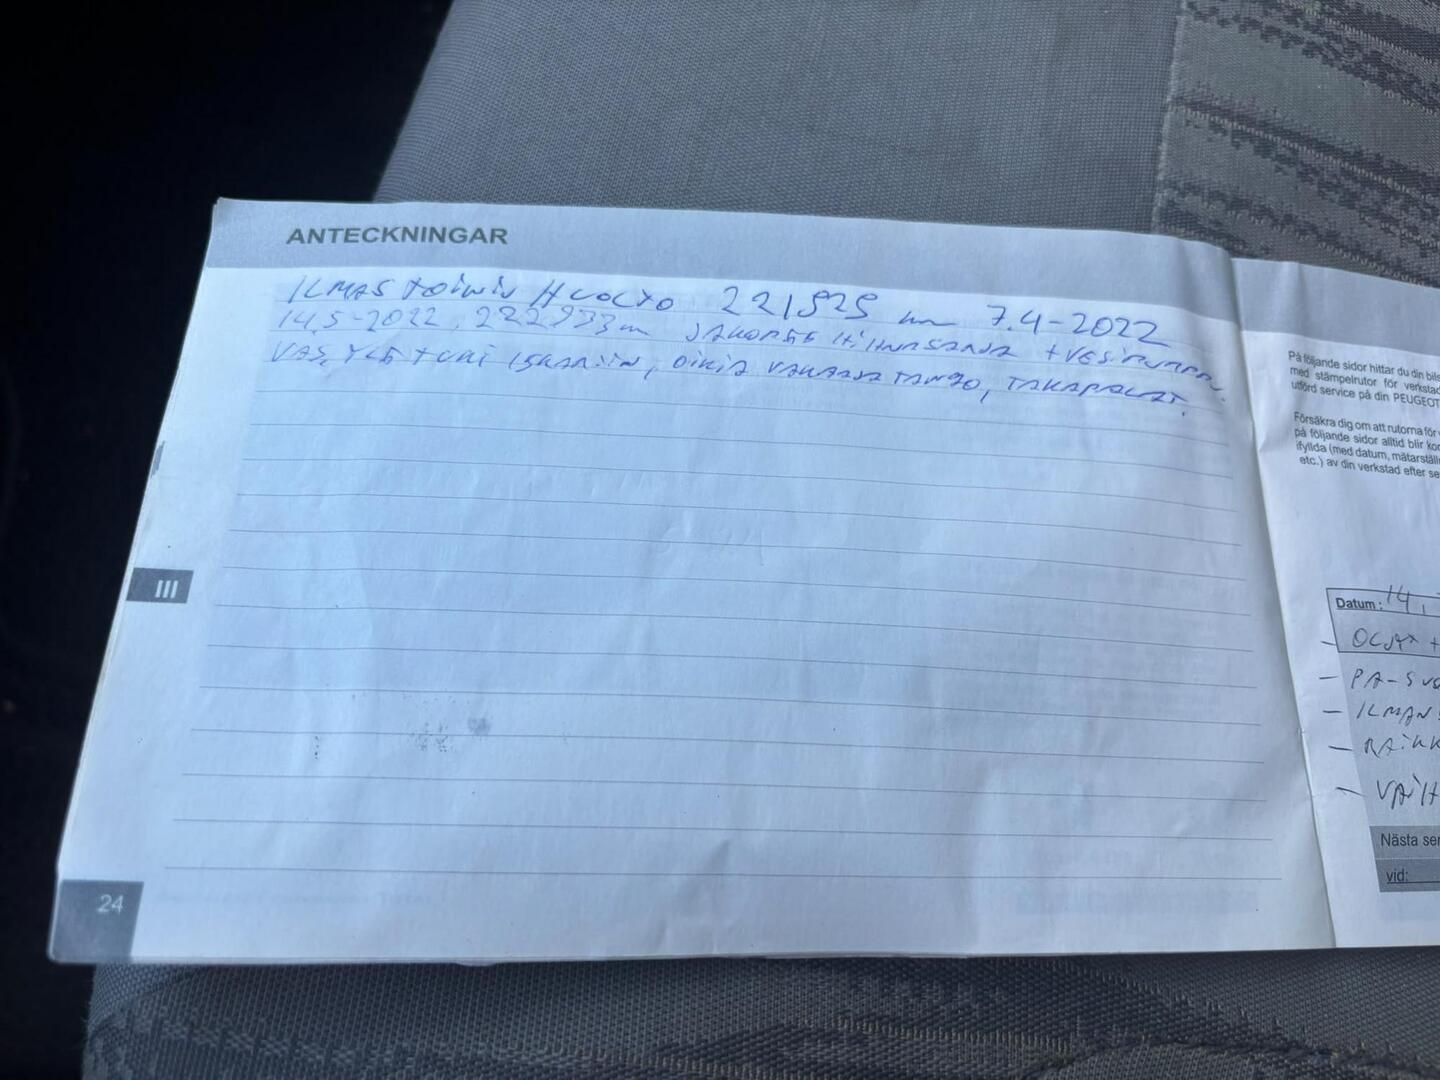 ANTECKNINGAR
ILMASTOININ HUOLTO 221525 km 7.4-2022
14.5-2022. 222933 km JAKOPÄÄ HIHNASARJA + VESIPUMPPU.
VAS. YLÄ TUKI ISKARIIN, OIKIA VAKAAJATANGO, TAKAPALAT.
III
24
På följande sidor hittar du din bils
med stämpelrutor för verkstad
utförd service på din PEUGEOT
Försäkra dig om att rutorna för
på följande sidor alltid blir kor
ifyllda (med datum, mätarställn
etc.) av din verkstad efter se
Datum: 14.
+
- PA-SUO
- ILMANS
- RAIKK
- VAIH
Nästa ser
vid: